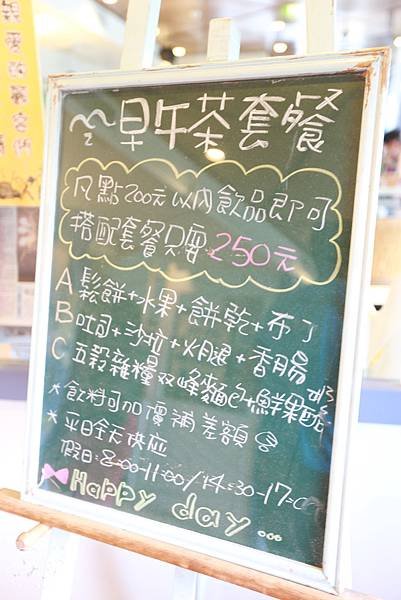 親愛的
早午茶套餐
凡點200元以內飲品即可
搭配套餐只要250元
A 鬆餅+水果+餅乾+布丁
B 吐司+沙拉+火腿+香腸
C 五穀雜糧双峰麵包+鮮果
*飲料可加價補差額
*平日全天供應
假日:8:00-11:00/14:30-17:00
Happy day...